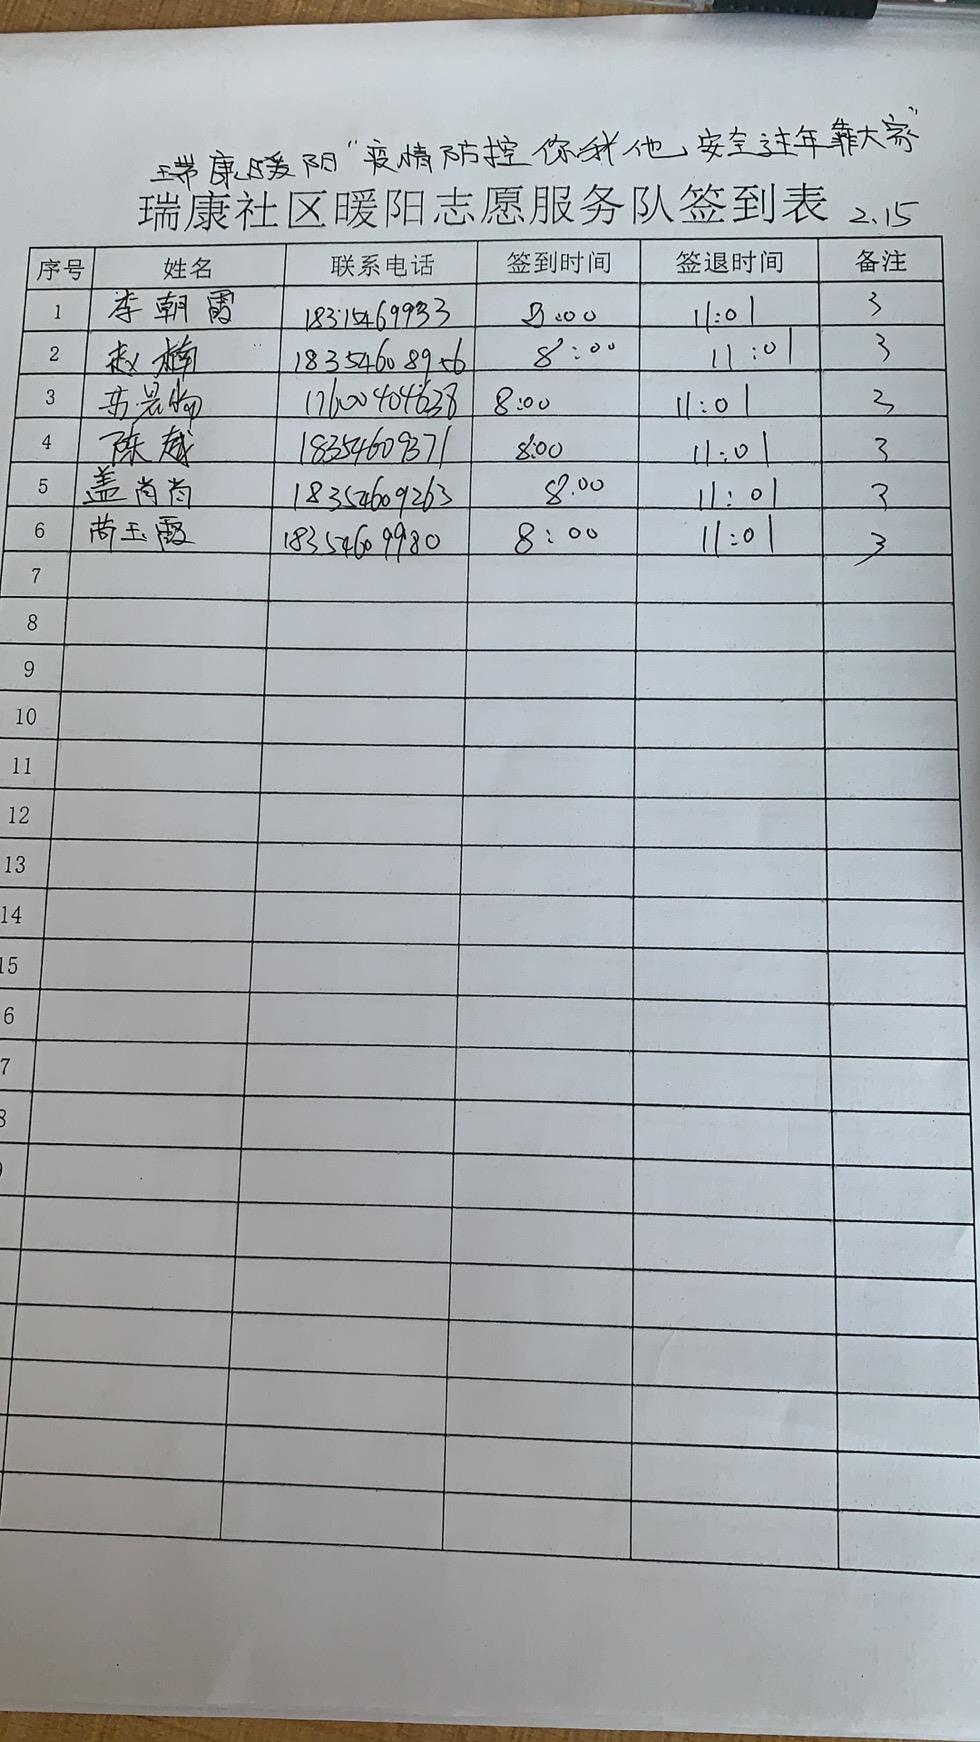 瑞康暖阳“疫情防控你我他，安全过年靠大家”
瑞康社区暖阳志愿服务队签到表 2.15
序号 姓名 联系电话 签到时间 签退时间 备注
1 李朝霞 18315469933 8:00 11:01 3
2 赵楠 18354608956 8:00 11:01 3
3 17600404638 8:00 11:01 3
4 陈越 18354609371 8:00 11:01 3
5 盖肖肖 18354609263 8:00 11:01 3
6 苘玉霞 18354609980 8:00 11:01 3
7
8
9
10
11
12
13
14
15
6
7
8
9